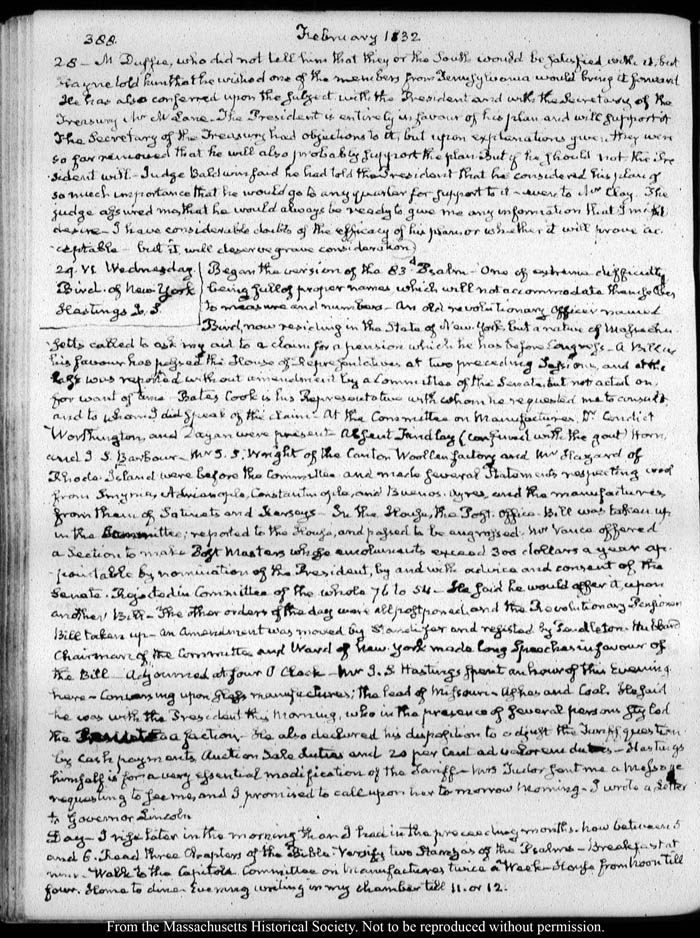 388
February 1832
28 - McDuffie, who did not tell him that they or the South would be satisfied with it, but
Hayne told him that he wished one of the members from Pennsylvania would bring it forward
He has also conferred upon the subject with the President and with the Secretary of the
Treasury Mr McLane. The President is entirely in favour of his plan and will support it
The Secretary of the Treasury had objections to it, but upon explanations given they were
so far removed that he will also probably support the plan. But if he should not the Pre-
sident will - Judge Baldwin said he had told the President that he considered his plan of
so much importance that he would go to any quarter for support to it - even to Mr Clay. The
judge assured me, that he would always be ready to give me any information that I might
desire - I have considerable doubts of the efficacy of his plan, or whether it will prove ac-
ceptable - but it will deserve grave consideration
29. VI. Wednesday
Bird. of New York
Hastings J. S
Began the version of the 83d Psalm - One of extreme difficulty
being full of proper names which will not accommodate themselves
to measure and numbers - An old revolutionary Officer named
Bird, now residing in the State of New York, but a native of Massachu-
setts called to ask my aid to a claim for a pension which he has before Congress - A Bill in
his favour has passed the House of Representatives at two preceding Sessions, and at the
last was reported without amendment by a Committee of the Senate, but not acted on,
for want of time. Bates Cook is his Representative with whom he requested me to consult,
and to whom I did speak of the claim - At the Committee on Manufactures, Dr Condict
Worthington, and Dayan were present - Absent Findlay (confined with the gout) Horn,
and J S Barbour - Mr S. S. Wright of the Canton Woollen factory and Mr Hazard of
Rhode-Island were before the Committee and made several statements respecting wool
from Smyrna, Adrianople, Constantinople, and Buenos-Ayres, and the manufactures,
from them of Satinets and Kerseys - In the House, the Post-Office Bill was taken up
in the Committee; reported to the House, and passed to be engrossed. Mr Vance offered
a Section to make Post Masters whose emoluments exceed 300 dollars a year ap-
pointable by nomination of the President, by and with advice and consent of the
Senate. Rejected in Committee of the whole 76 to 54 - He said he would offer it, upon
another Bill - The other orders of the day were all postponed, and the Revolutionary Pensioner
Bill taken up - An Amendment was moved by Standifer and resisted by Pendleton. Hubbard
Chairman of the Committee and Ward of New York made long Speeches in favour of
the Bill - Adjourned at four O'Clock - Mr J. S Hastings spent an hour of this Evening
here - Conversing upon glass manufactures; the lead of Missouri - Ashes and Coal. He said
he was with the President this Morning, who in the presence of several persons styled
the a faction. He also declared his disposition to adjust the Tariff question
by Cash payments, Auction Sale duties and 20 per Cent ad valorem duties - Hastings
himself is for a very essential modification of the Tariff - Mrs Tudor sent me a Message
requesting to see me, and I promised to call upon her to morrow Morning - I wrote a Letter
to Governor Lincoln
Day - I rise later in the morning than I had in the preceeding months. now between 5
and 6. Read three Chapters of the Bible. Versify two Stanzas of the Psalms - Breakfast at
nine - Walk to the Capitol. Committee on Manufactures twice a Week - House from noon till
four. Home to dine. Evening writing in my chamber till 11. or 12.
From the Massachusetts Historical Society. Not to be reproduced without permission.